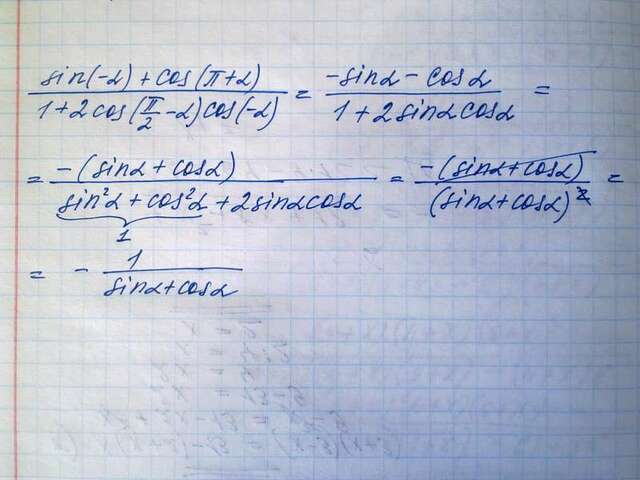 sin(-α) + cos(π+α) / 1+2cos(π/2 -α)cos(-α) = -sinα - cosα / 1+2sinαcosα =
= -(sinα + cosα) / sin²α + cos²α + 2sinαcosα = -(sinα+cosα) / (sinα+cosα)² =
1
= - 1 / sinα+cosα